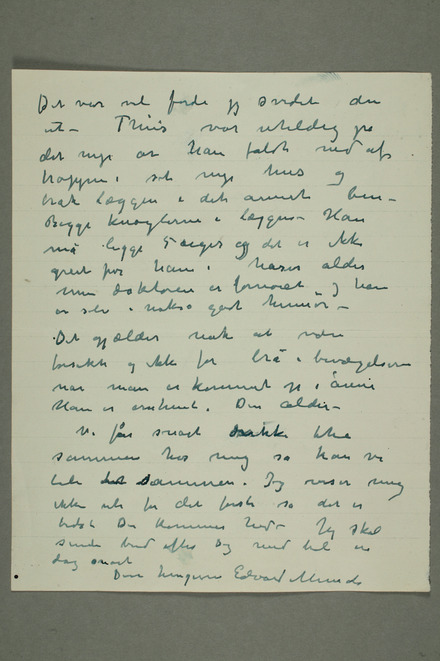 Det var vel fordi jeg det du
ut – Thiis var uheldig
det nye år Han faldt ned af
trappen i sit nye hus og
brak læggen i det annet ben –
Begge knoglerne i læggen – Han
må ligge 5 uger og det er ikke
greit for ham i hans alder
men doktoren er fornøiet og han
er selv i nokså godt humør –
Det gjælder nok at være
forsikti og ikke for brå i bevægelserne
når man er kommet op i årene
Han er omtrent Din alder –
Vi får snart drikke the
sammen hos mig så kan vi
tale sammen. Jeg reiser mig
ikke ut for det første så det er
bedst Du kommer hid – Jeg skal
sende bud efter Dig med bil en
dag snart
Din hengivne Edvard Munch